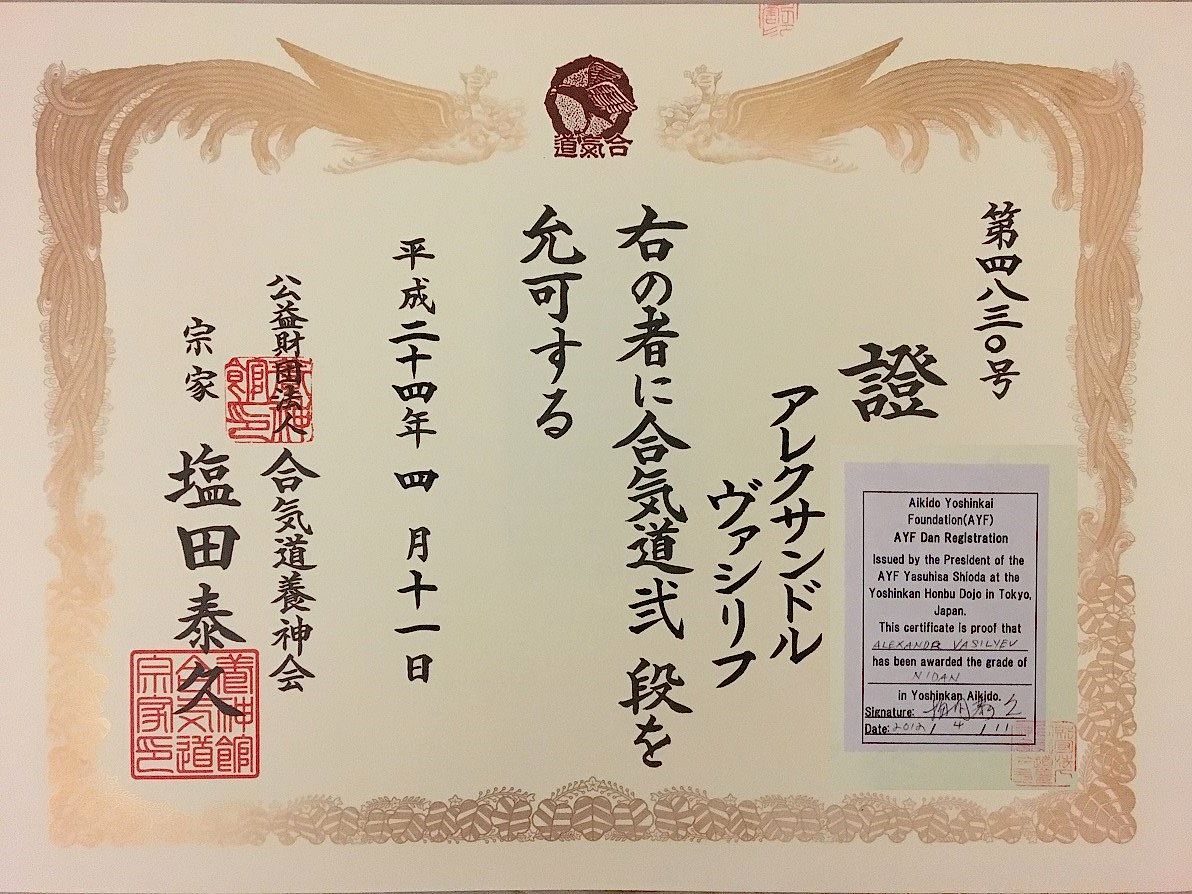 合氣道
第四八三〇号
證
アレクサンドル
ヴァシリフ
右の者に合気道弐段を
允可する
平成二十四年四月十一日
公益財団法人合気道養神会
宗家 塩田泰久
養神館
合気道
宗家印
Aikido Yoshinkai
Foundation(AYF)
AYF Dan Registration
Issued by the President of the
AYF Yasuhisa Shioda at the
Yoshinkan Honbu Dojo in Tokyo,
Japan.
This certificate is proof that
ALEXANDR VASILYEV
has been awarded the grade of
NIDAN
in Yoshinkan Aikido.
Signature:
Date: 2012 / 4 / 11